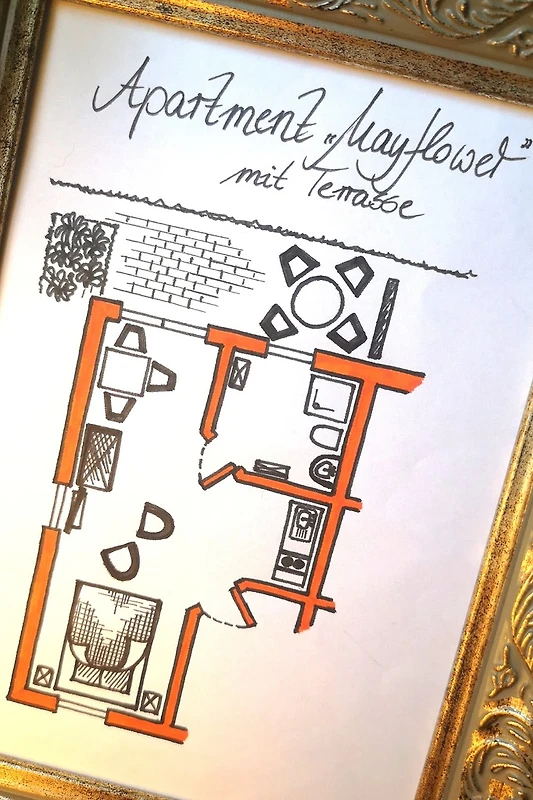 Apartment „Mayflower"
mit Terrasse